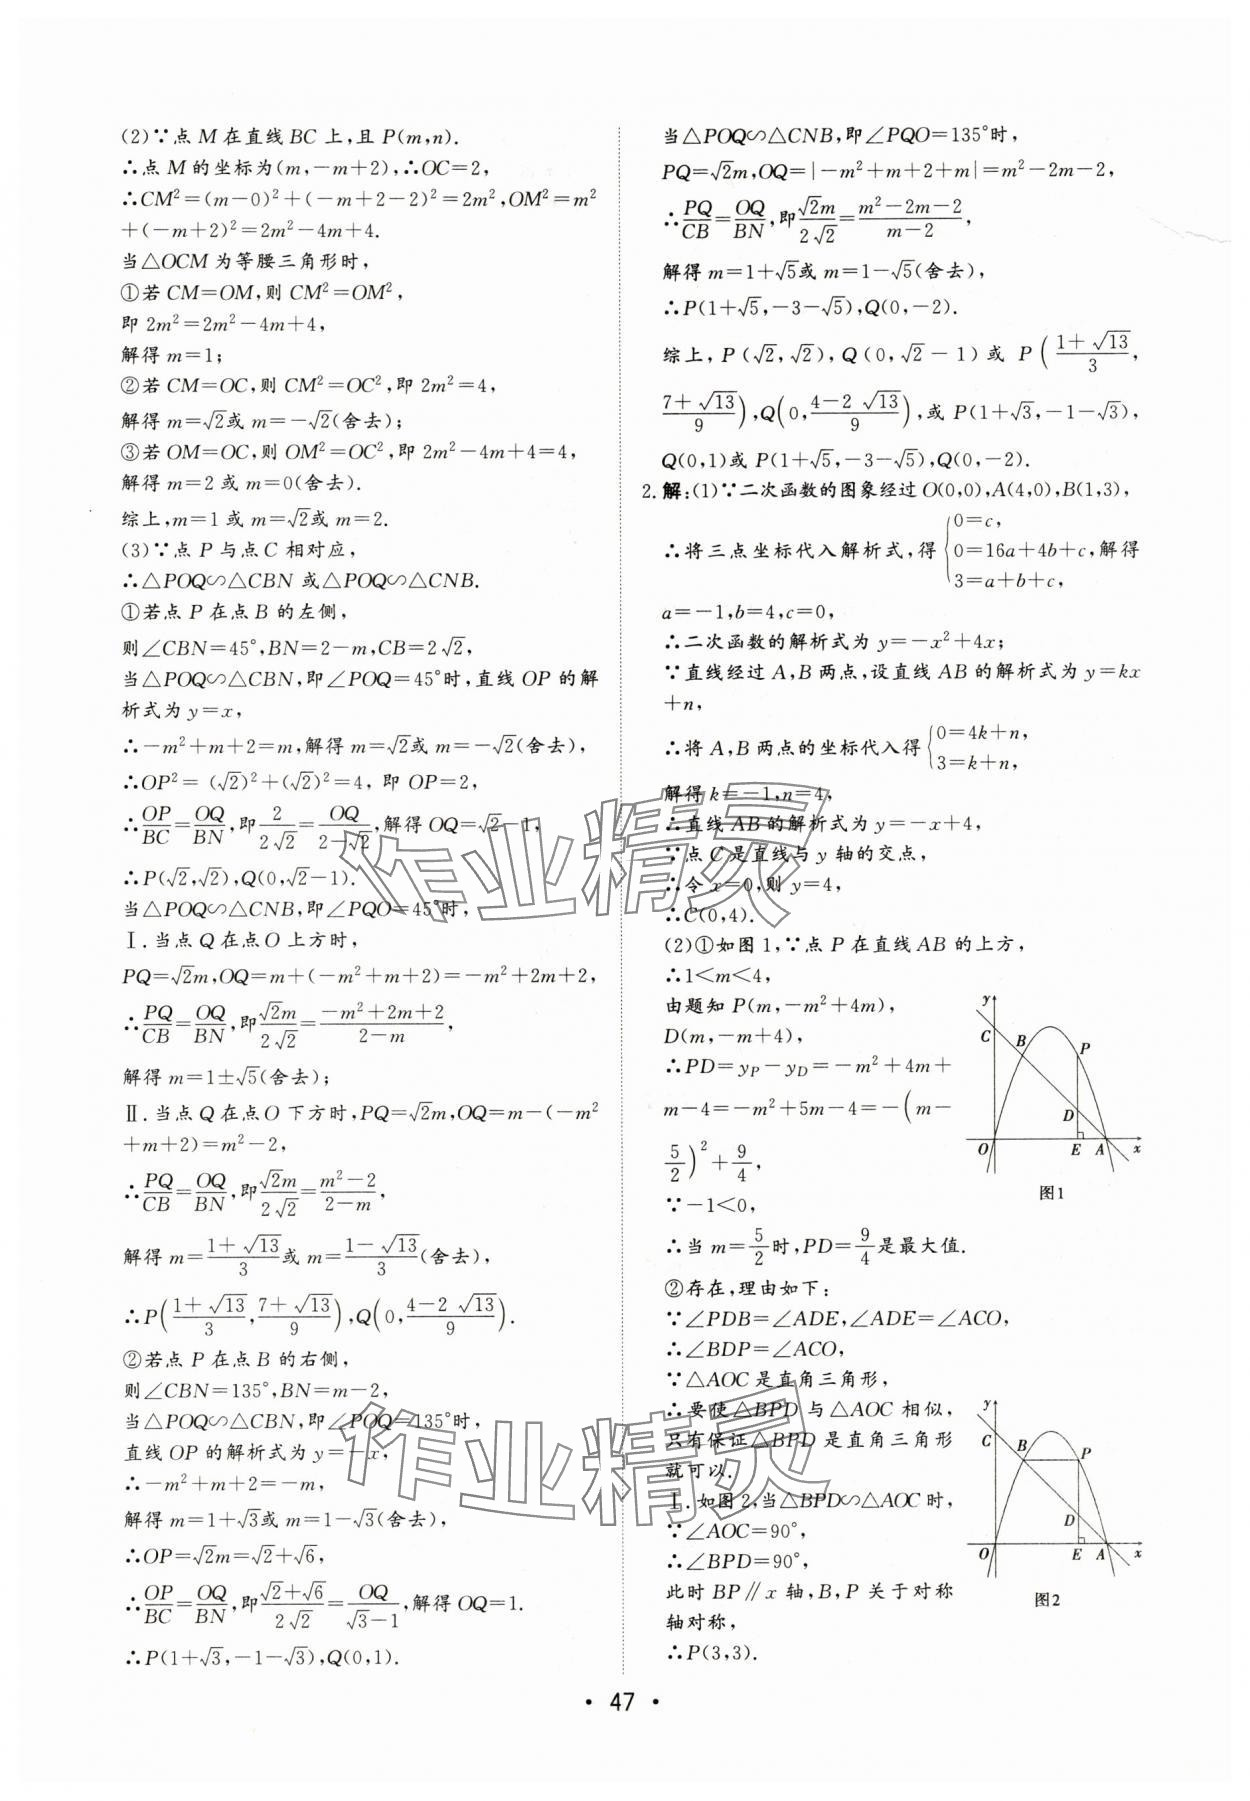 (2)∵点 M 在直线 BC 上,且 P(m,n).
∴点 M 的坐标为(m,-m+2),∴OC=2,
∴CM²=(m-0)²+(-m+2-2)²=2m²,OM²=m²
+(-m+2)²=2m²-4m+4.
当△OCM 为等腰三角形时,
①若 CM=OM,则 CM²=OM²,
即 2m²=2m²-4m+4,
解得 m=1;
②若 CM=OC,则 CM²=OC²,即 2m²=4,
解得 m=√2或 m=-√2(舍去);
③若 OM=OC,则 OM²=OC²,即 2m²-4m+4=4,
解得 m=2 或 m=0(舍去).
综上,m=1 或 m=√2或 m=2.
(3)∵点 P 与点 C 相对应,
∴△POQ∽△CBN 或△POQ∽△CNB.
①若点 P 在点 B 的左侧,
则∠CBN=45°,BN=2-m,CB=2√2,
当△POQ∽△CBN,即∠POQ=45°时,直线 OP 的解
析式为 y=x,
∴-m²+m+2=m,解得 m=√2或 m=-√2(舍去),
∴OP²=(√2)²+(√2)²=4,即 OP=2,
∴OP/BC=OQ/BN,即2/(2√2)=OQ/(2-√2),解得 OQ=√2-1,
∴P(√2,√2),Q(0,√2-1).
当△POQ∽△CNB,即∠PQO=45°时,
Ⅰ.当点 Q 在点 O 上方时,
PQ=√2m,OQ=m+(-m²+m+2)=-m²+2m+2,
∴PQ/CB=OQ/BN,即√2m/(2√2)=(-m²+2m+2)/(2-m),
解得 m=1±√5(舍去);
Ⅱ.当点 Q 在点 O 下方时,PQ=√2m,OQ=m-(-m²
+m+2)=m²-2,
∴PQ/CB=OQ/BN,即√2m/(2√2)=(m²-2)/(2-m),
解得 m=(1+√13)/3或 m=(1-√13)/3(舍去),
∴P((1+√13)/3,(7+√13)/9),Q(0,(4-2√13)/9).
②若点 P 在点 B 的右侧,
则∠CBN=135°,BN=m-2,
当△POQ∽△CBN,即∠POQ=135°时,
直线 OP 的解析式为 y=-x,
∴-m²+m+2=-m,
解得 m=1+√3或 m=1-√3(舍去),
∴OP=√2m=√2+√6,
∴OP/BC=OQ/BN,即(√2+√6)/(2√2)=OQ/(√3-1),解得 OQ=1.
∴P(1+√3,-1-√3),Q(0,1).
当△POQ∽△CNB,即∠PQO=135°时,
PQ=√2m,OQ=|-m²+m+2+m|=m²-2m-2,
∴PQ/CB=OQ/BN,即√2m/(2√2)=(m²-2m-2)/(m-2),
解得 m=1+√5或 m=1-√5(舍去),
∴P(1+√5,-3-√5),Q(0,-2).
综上,P(√2,√2),Q(0,√2-1)或 P((1+√13)/3,
(7+√13)/9),Q(0,(4-2√13)/9),或 P(1+√3,-1-√3),
Q(0,1)或 P(1+√5,-3-√5),Q(0,-2).
2.解:(1)∵二次函数的图象经过 O(0,0),A(4,0),B(1,3),
∴将三点坐标代入解析式,得{0=c, 0=16a+4b+c, 3=a+b+c,解得
a=-1,b=4,c=0,
∴二次函数的解析式为 y=-x²+4x;
∵直线经过 A,B 两点,设直线 AB 的解析式为 y=kx
+n,
∴将 A,B 两点的坐标代入得{0=4k+n, 3=k+n,
解得 k=-1,n=4,
∴直线 AB 的解析式为 y=-x+4,
∵点 C 是直线与 y 轴的交点,
∴令 x=0,则 y=4,
∴C(0,4).
(2)①如图 1,∵点 P 在直线 AB 的上方,
∴1<m<4,
由题知 P(m,-m²+4m),
D(m,-m+4),
∴PD=y_P-y_D=-m²+4m+
m-4=-m²+5m-4=-(m-
5/2)²+9/4,
∵-1<0,
∴当 m=5/2时,PD=9/4是最大值.
y
C
B
P
D
O
E
A
x
图1
②存在,理由如下:
∵∠PDB=∠ADE,∠ADE=∠ACO,
∴∠BDP=∠ACO,
∵△AOC 是直角三角形,
∴要使△BPD 与△AOC 相似,
只有保证△BPD 是直角三角形
就可以.
Ⅰ.如图 2,当△BPD∽△AOC 时,
∵∠AOC=90°,
∴∠BPD=90°,
此时 BP∥x 轴,B,P 关于对称
轴对称,
∴P(3,3).
y
C
B
P
D
O
E
A
x
图2
作业精灵
作业精灵
• 47 •